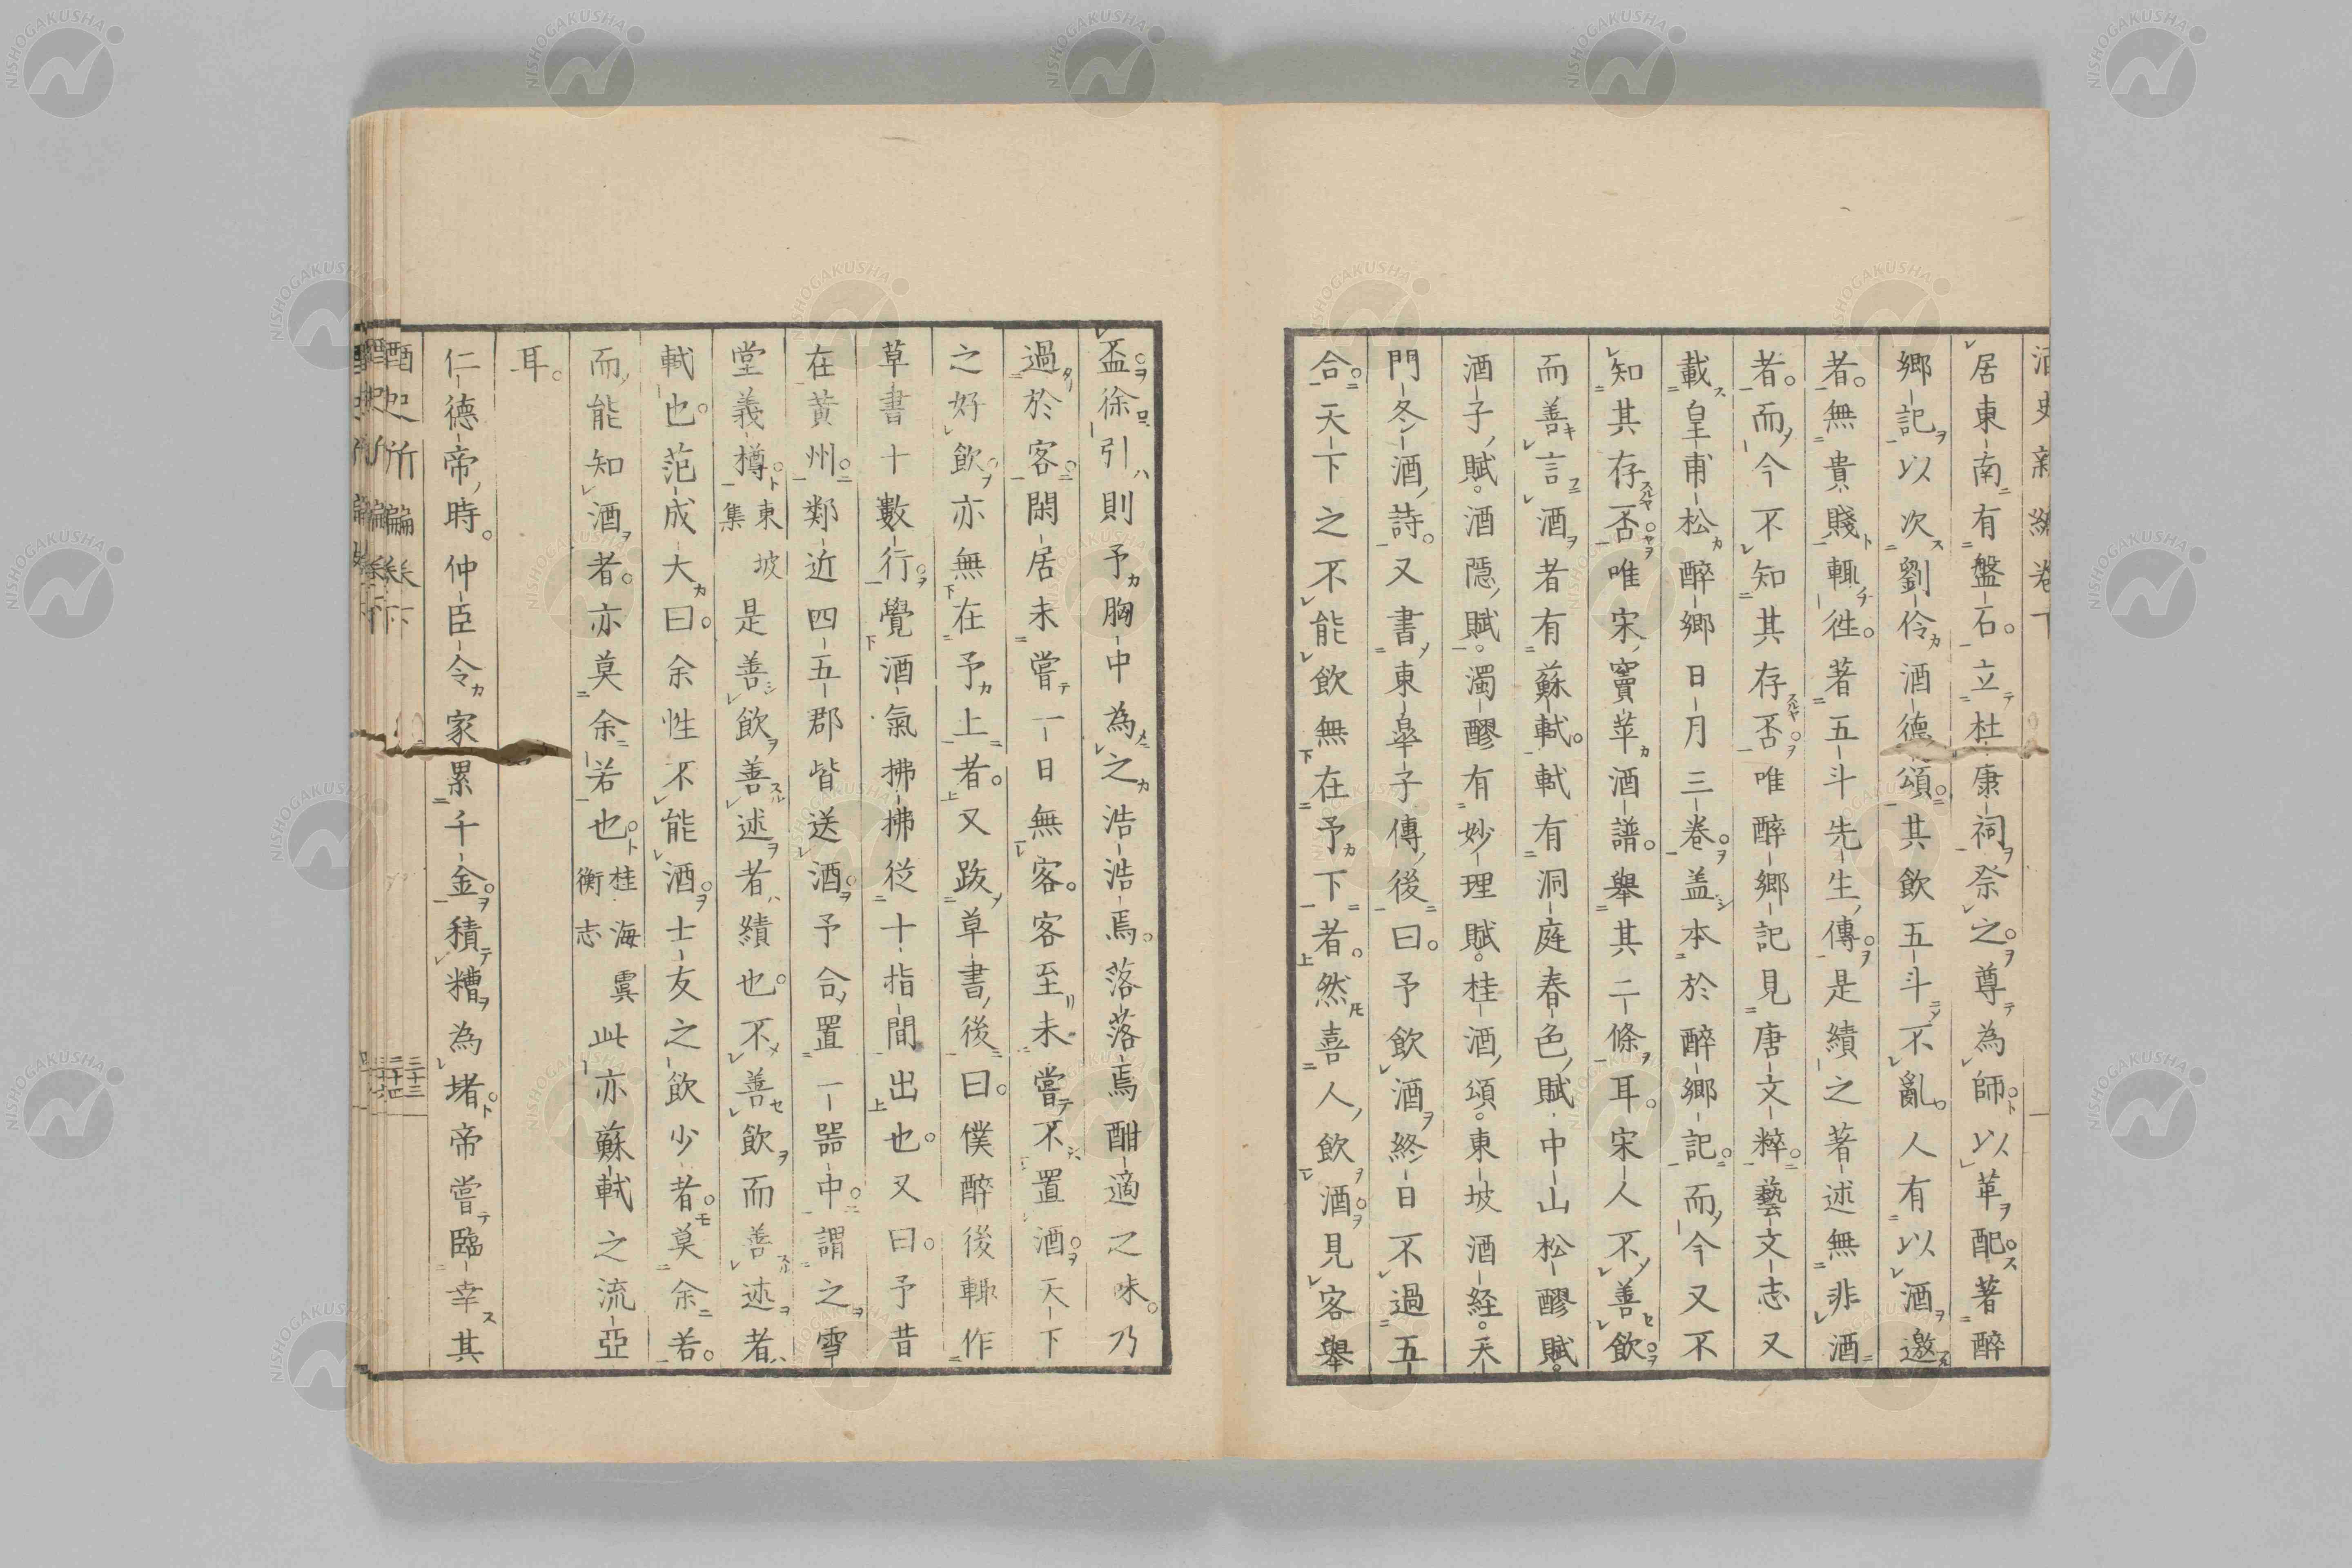 酒史新編卷下
居東南有盤石。立杜康祠祭之。尊為師。以革配。著醉
鄉記以次劉伶酒德頌。其飲五斗不亂。人有以酒邀
者。無貴賤輙徃。著五斗先生傳。是績之著述無非酒
者。而今不知其存否。唯醉鄉記見唐文粹。藝文志又
載皇甫松醉鄉日月三卷。盖本於醉鄉記。而今又不
知其存否。唯宋竇苹酒譜。舉其二條耳。宋人不善飲。
而善言酒者有蘇軾。軾有洞庭春色賦中山松醪賦。
酒子賦。酒隱賦。濁醪有妙理賦。桂酒頌。東坡酒経。天
門冬酒詩。又書東皐子傳後曰。予飲酒終日不過五
合。天下之不能飲無在予下者。然喜人飲酒。見客舉
盃徐引則予胸中為之浩浩焉。落落焉酣適之味。乃
過於客。閑居未嘗一日無客。客至未嘗不置酒。天下
之好飲。亦無在予上者。又跋草書後曰。僕醉後輙作
草書十數行。覺酒氣拂拂從十指間出也。又曰。予昔
在黄州。鄰近四五郡皆送酒。予合置一器中。謂之雪
堂義樽。東坡集是善飲善述者績也。不善飲而善述者
軾也。范成大曰。余性不能酒。士友之飲少者。莫余若。
而能知酒者。亦莫余若也。桂海虞衡志此亦蘇軾之流亞
耳。
仁德帝時。仲臣令家累千金。積糟為堵。帝嘗臨幸其